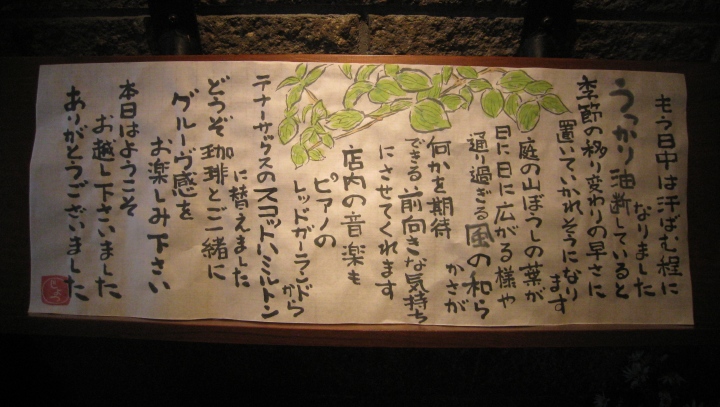 もう日中は汗ばむ程に
なりました
うっかり油断していると
季節の移り変わりの早さに
置いていかれそうになり
ます
庭の山ぼうしの葉が
日に日に広がる様や
通り過ぎる風の和ら
かさが
何かを期待
できる前向きな気持ち
にさせてくれます
店内の音楽も
ピアノの
レッドガーランドから
テナーサックスのスコットハミルトン
に替えました
どうぞ珈琲とご一緒に
グルーヴ感を
お楽しみ下さい
本日はようこそ
お越し下さいました
ありがとうございました